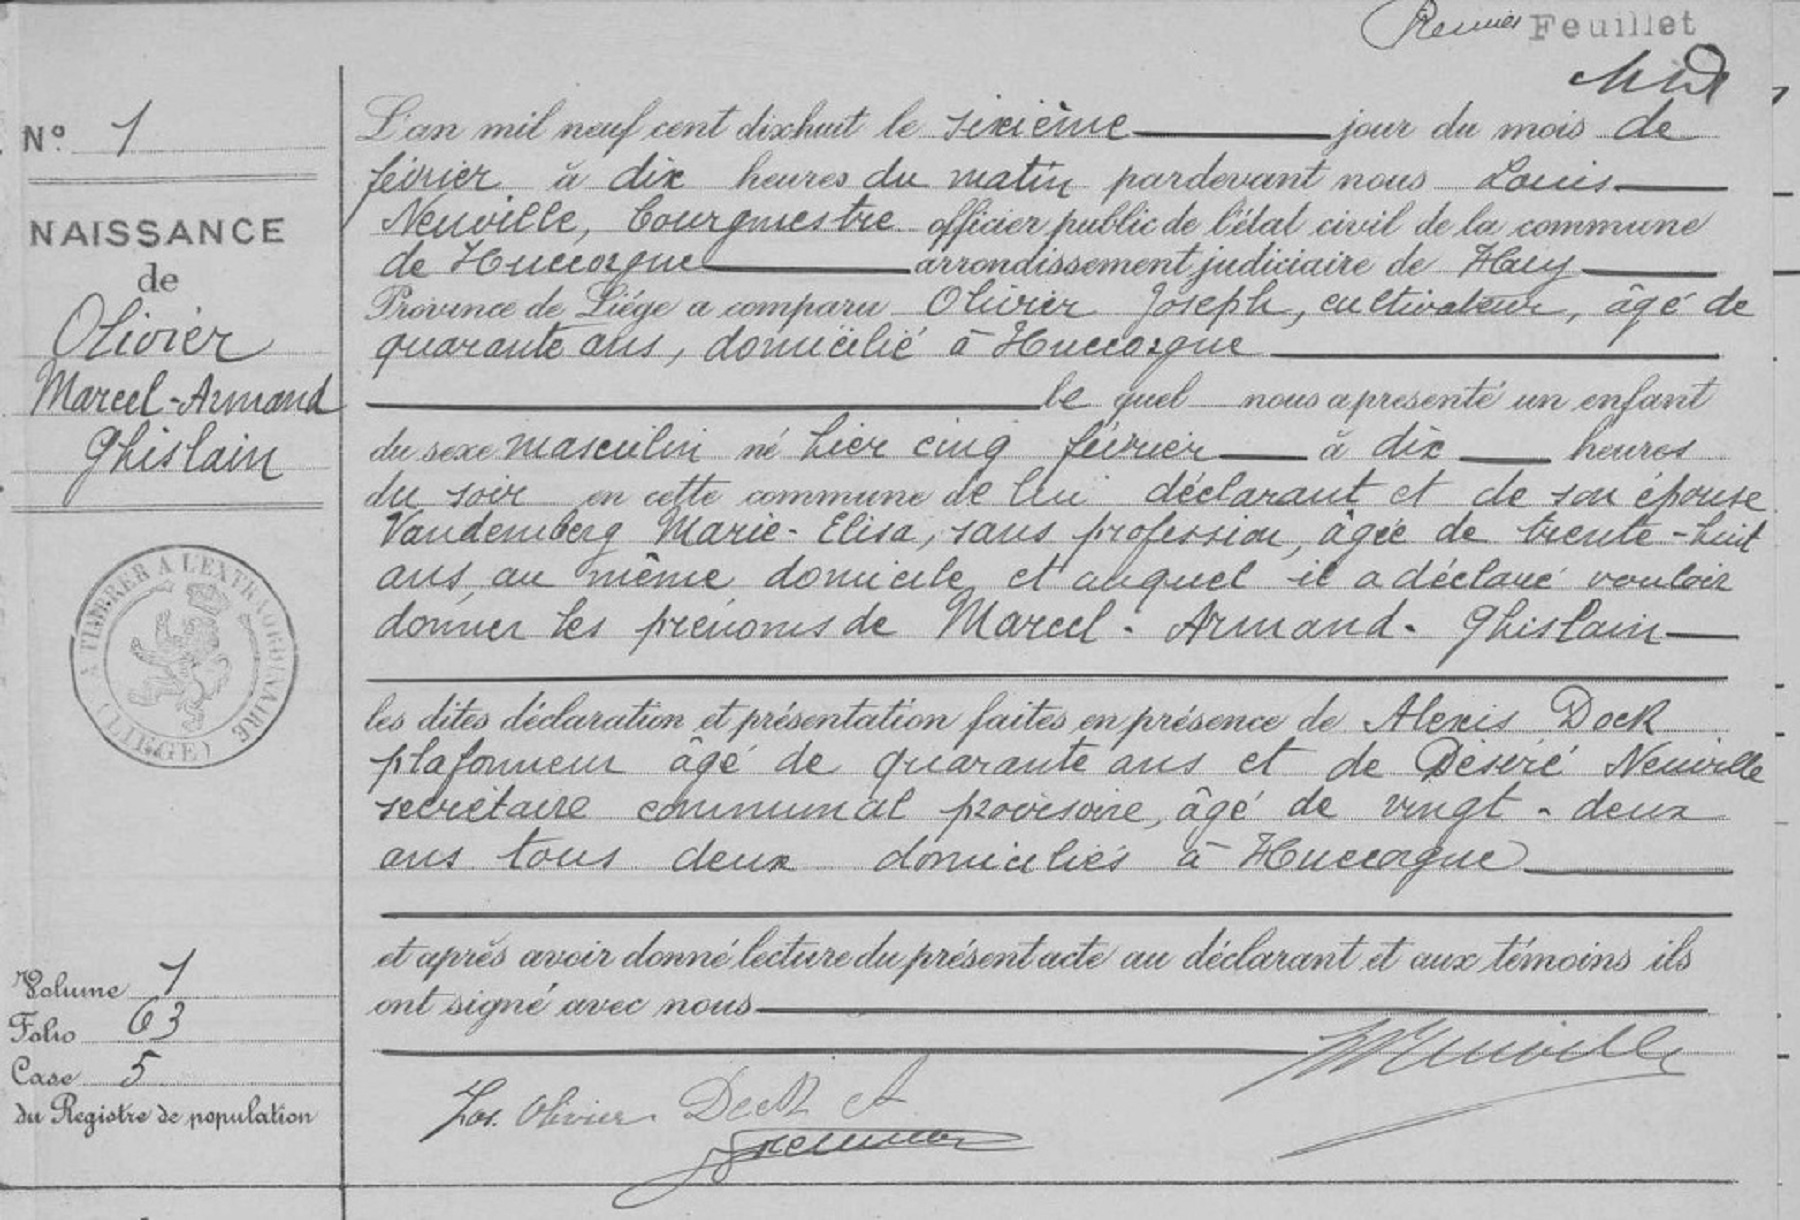 Premier Feuillet
N° 1
NAISSANCE
de
Olivier
Marcel-Armand
Ghislain
A TIMBRER A L'EXTRAORDINAIRE
(LIEGE)
Volume 1
Folio 63
Case 5
du Registre de population
L'an mil neuf cent dixhuit le sixième jour du mois de
février à dix heures du matin pardevant nous Louis
Neuville, bourgmestre officier public de l'état civil de la commune
de Huccorgne arrondissement judiciaire de Huy
Province de Liége a comparu Olivier Joseph, cultivateur, âgé de
quarante ans, domicilié à Huccorgne
le quel nous a presenté un enfant
du sexe masculin né hier cinq février à dix heures
du soir en cette commune de lui déclarant et de son épouse
Vandemberg Marie-Elisa, sans profession, âgée de trente-huit
ans, au même domicile et auquel il a déclaré vouloir
donner les prénoms de Marcel-Armand-Ghislain
les dites déclaration et présentation faites en présence de Alexis Dock
plafonneur âgé de quarante ans et de Désiré Neuville
secrétaire communal provisoire, âgé de vingt-deux
ans tous deux domiciliés à Huccorgne
et après avoir donné lecture du présent acte au déclarant et aux témoins ils
ont signé avec nous
Neuville
Jos. Olivier. Dock A